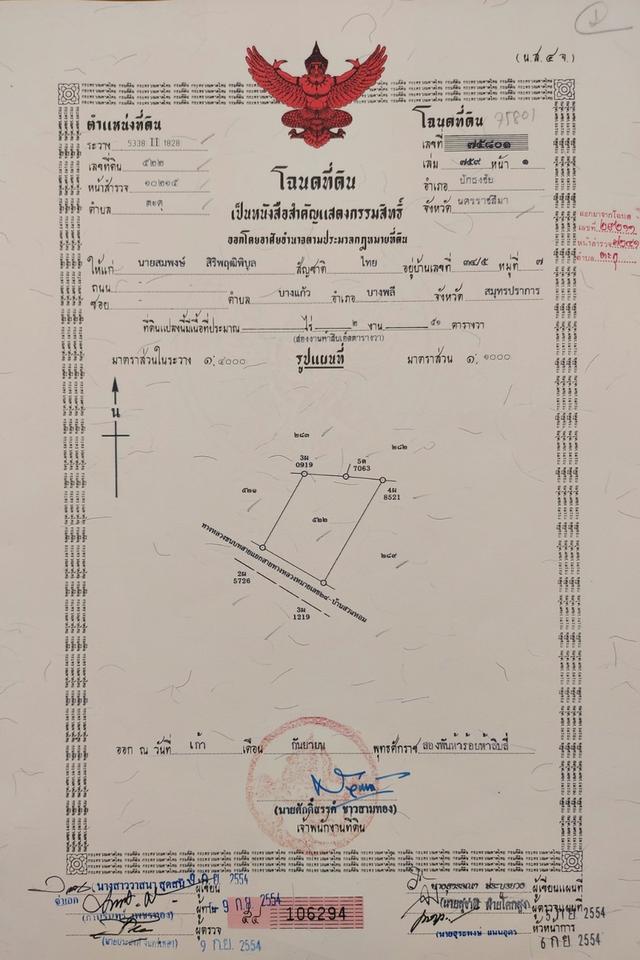 (น.ส. ๔ จ.)
ตำแหน่งที่ดิน
ระวาง 5338 II 1828
เลขที่ดิน ๕๒๒
หน้าสำรวจ ๑๐๒๑๕
ตำบล ตะคุ
โฉนดที่ดิน 75801
เลขที่ ๗๕๘๐๑
เล่ม ๗๕๙ หน้า ๑
อำเภอ ปักธงชัย
จังหวัด นครราชสีมา
โฉนดที่ดิน
เป็นหนังสือสำคัญแสดงกรรมสิทธิ์
ออกโดยอาศัยอำนาจตามประมวลกฎหมายที่ดิน
แยกมาจากโฉนด
เลขที่
หน้าสำรวจ
ตำบล ตะคุ
ให้แก่ นายสมพงษ์ สิริพฤฒิพิบูล สัญชาติ ไทย อยู่บ้านเลขที่ ๓๔/๕ หมู่ที่ ๗
ถนน ตำบล บางแก้ว อำเภอ บางพลี จังหวัด สมุทรปราการ
ซอย
ที่ดินแปลงนี้มีเนื้อที่ประมาณ ไร่ ๒ งาน ๕๑ ตารางวา
(สองงานห้าสิบเอ็ดตารางวา)
มาตราส่วนในระวาง ๑:๔๐๐๐ รูปแผนที่ มาตราส่วน ๑:๑๐๐๐
น
๒๘๓
๒๘๒
3ผ
0919
5ต
7063
4ผ
8521
๕๒๑
๕๒๒
๒๘๙
ทางหลวงชนบทสายแยกสายทางหลวงหมายเลข๒๔-บ้านสวนหอม
2ผ
5726
3ผ
1219
ออก ณ วันที่ เก้า เดือน กันยายน พุทธศักราช สองพันห้าร้อยห้าสิบสี่
เจ้าพนักงานที่ดิน
ผู้เขียน
9 ก.ย. 2554
106294
ผู้ตรวจ
9 ก.ย. 2554
ผู้เขียนแผนที่
ผู้ตรวจแผนที่
5 ก.ย. 2554
หัวหน้าการ
6 ก.ย. 2554